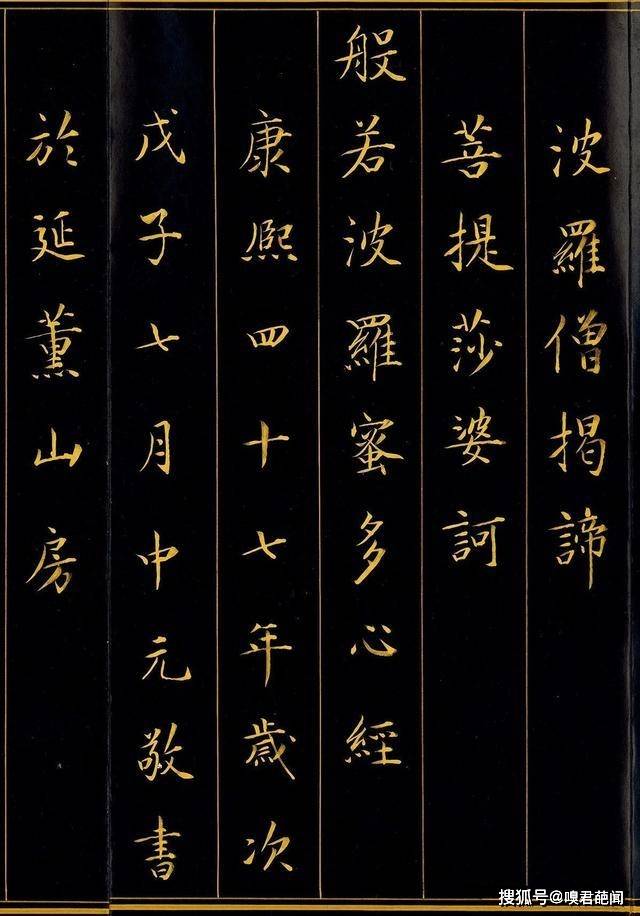 波羅僧揭諦
菩提莎婆訶
般若波羅蜜多心經
康熙四十七年歲次
戊子七月中元敬書
於延薰山房
搜狐号@嗅君葩闻